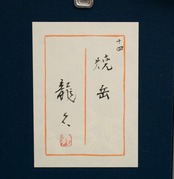 十四
焼岳
龍